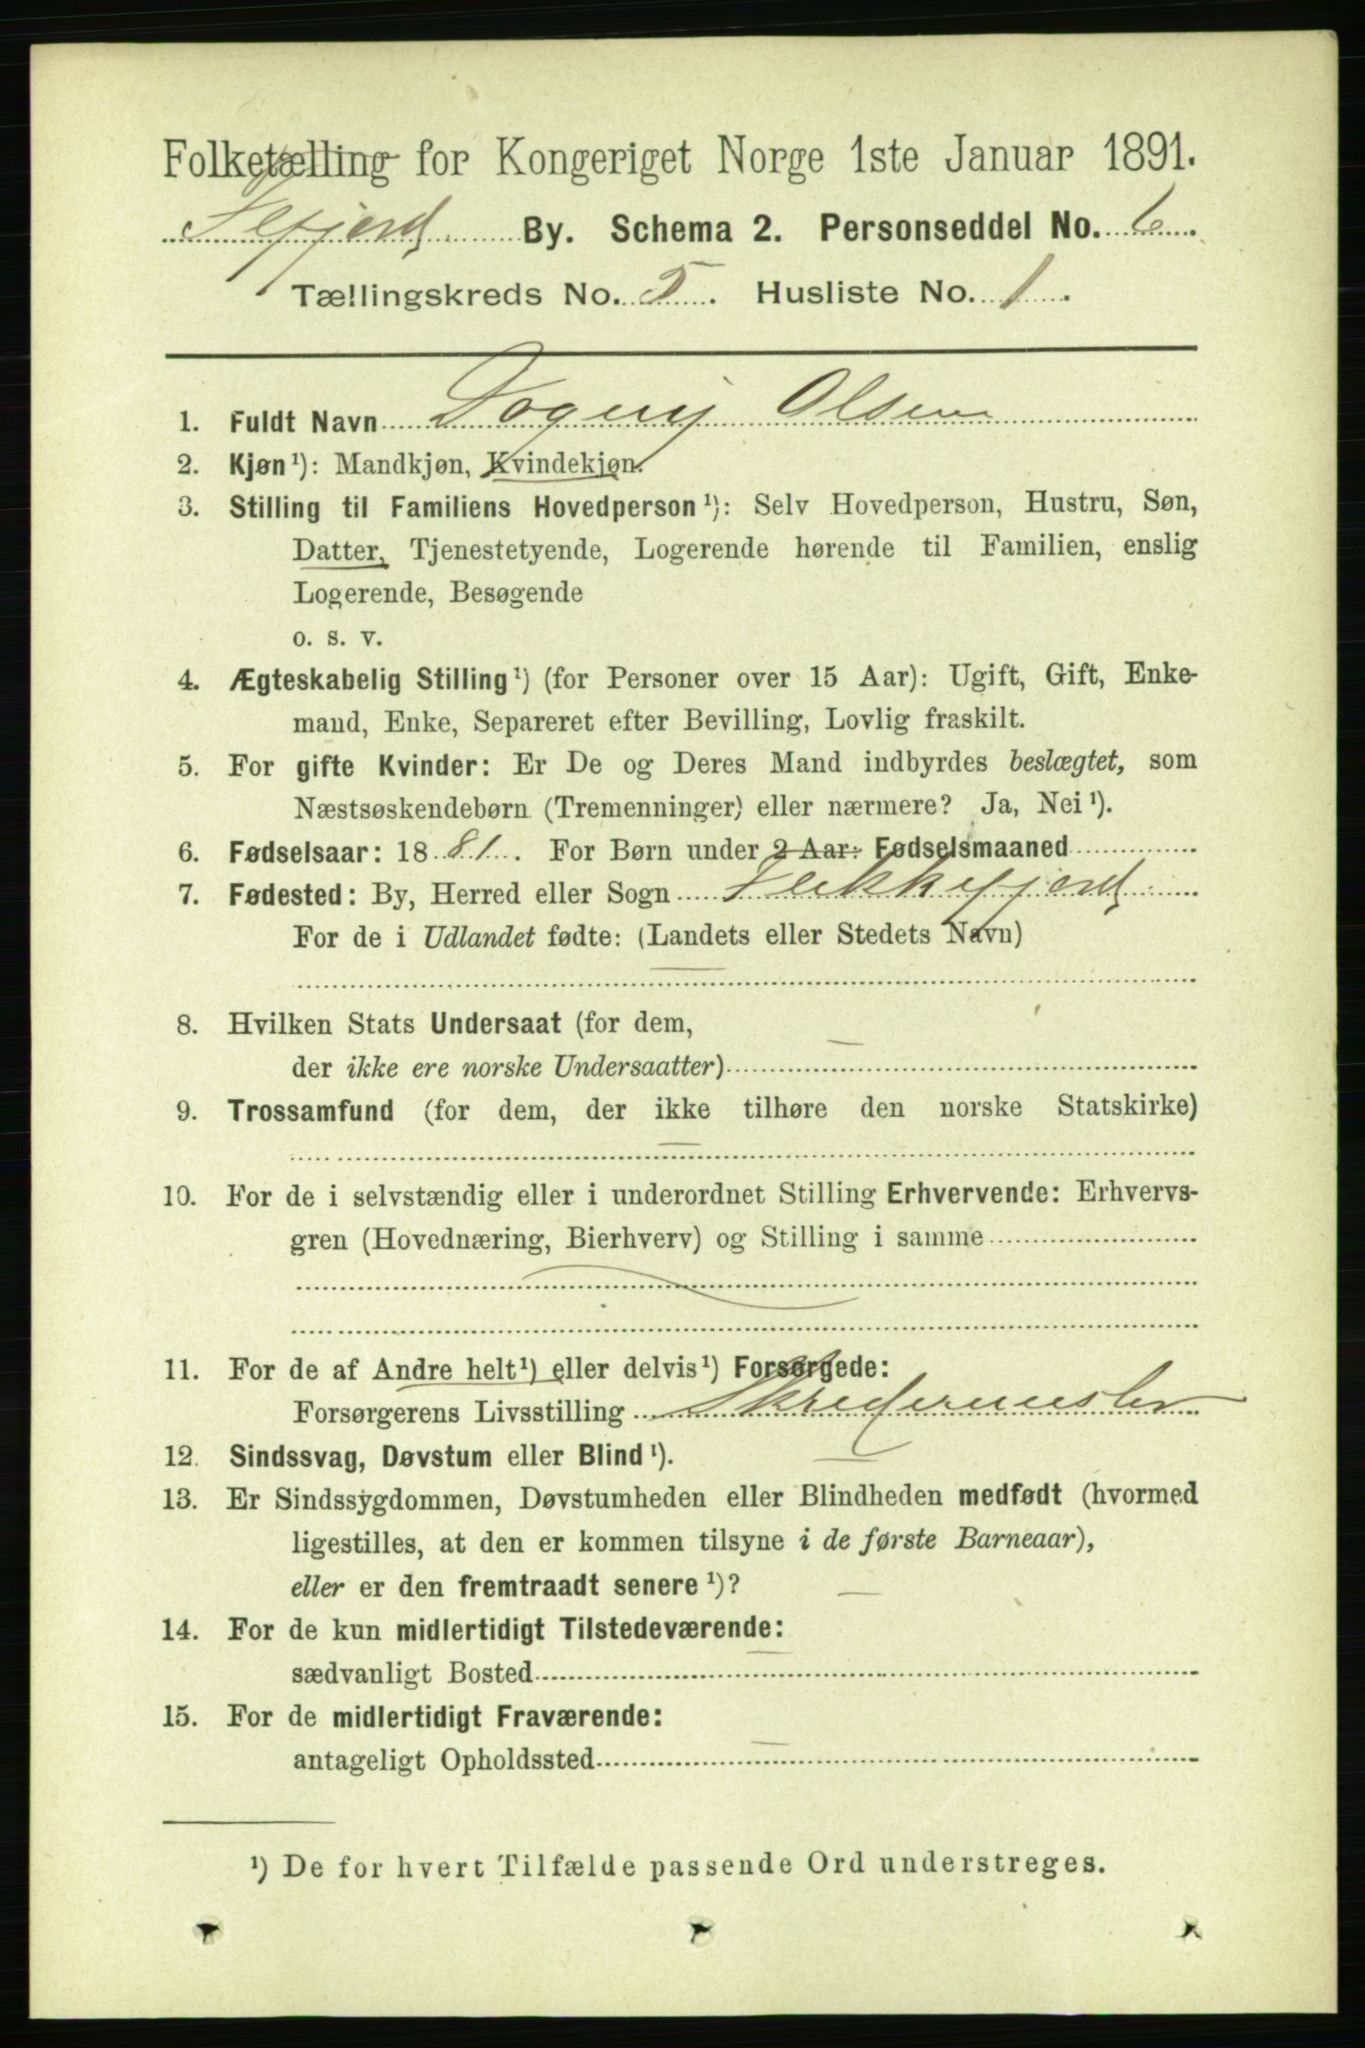 Folketælling for Kongeriget Norge 1ste Januar 1891.
Flfjord By. Schema 2. Personseddel No. 6.
Tællingskreds No. 5. Husliste No. 1.
1. Fuldt Navn Dogny Olsen
2. Kjøn¹): Mandkjøn, Kvindekjøn.
3. Stilling til Familiens Hovedperson¹): Selv Hovedperson, Hustru, Søn,
Datter, Tjenestetyende, Logerende hørende til Familien, enslig
Logerende, Besøgende
o. s. v.
4. Ægteskabelig Stilling¹) (for Personer over 15 Aar): Ugift, Gift, Enke-
mand, Enke, Separeret efter Bevilling, Lovlig fraskilt.
5. For gifte Kvinder: Er De og Deres Mand indbyrdes beslægtet, som
Næstsøskendebørn (Tremenninger) eller nærmere? Ja, Nei¹).
6. Fødselsaar: 1881. For Børn under 2 Aar: Fødselsmaaned
7. Fødested: By, Herred eller Sogn Flekkefjord
For de i Udlandet fødte: (Landets eller Stedets Navn)
8. Hvilken Stats Undersaat (for dem,
der ikke ere norske Undersaatter)
9. Trossamfund (for dem, der ikke tilhøre den norske Statskirke)
10. For de i selvstændig eller i underordnet Stilling Erhvervende: Erhvervs-
gren (Hovednæring, Bierhverv) og Stilling i samme
11. For de af Andre helt¹) eller delvis¹) Forsørgede:
Forsørgerens Livsstilling Skredermester
12. Sindssvag, Døvstum eller Blind¹).
13. Er Sindssygdommen, Døvstumheden eller Blindheden medfødt (hvormed
ligestilles, at den er kommen tilsyne i de første Barneaar),
eller er den fremtraadt senere¹)?
14. For de kun midlertidigt Tilstedeværende:
sædvanligt Bosted
15. For de midlertidigt Fraværende:
antageligt Opholdssted
¹) De for hvert Tilfælde passende Ord understreges.